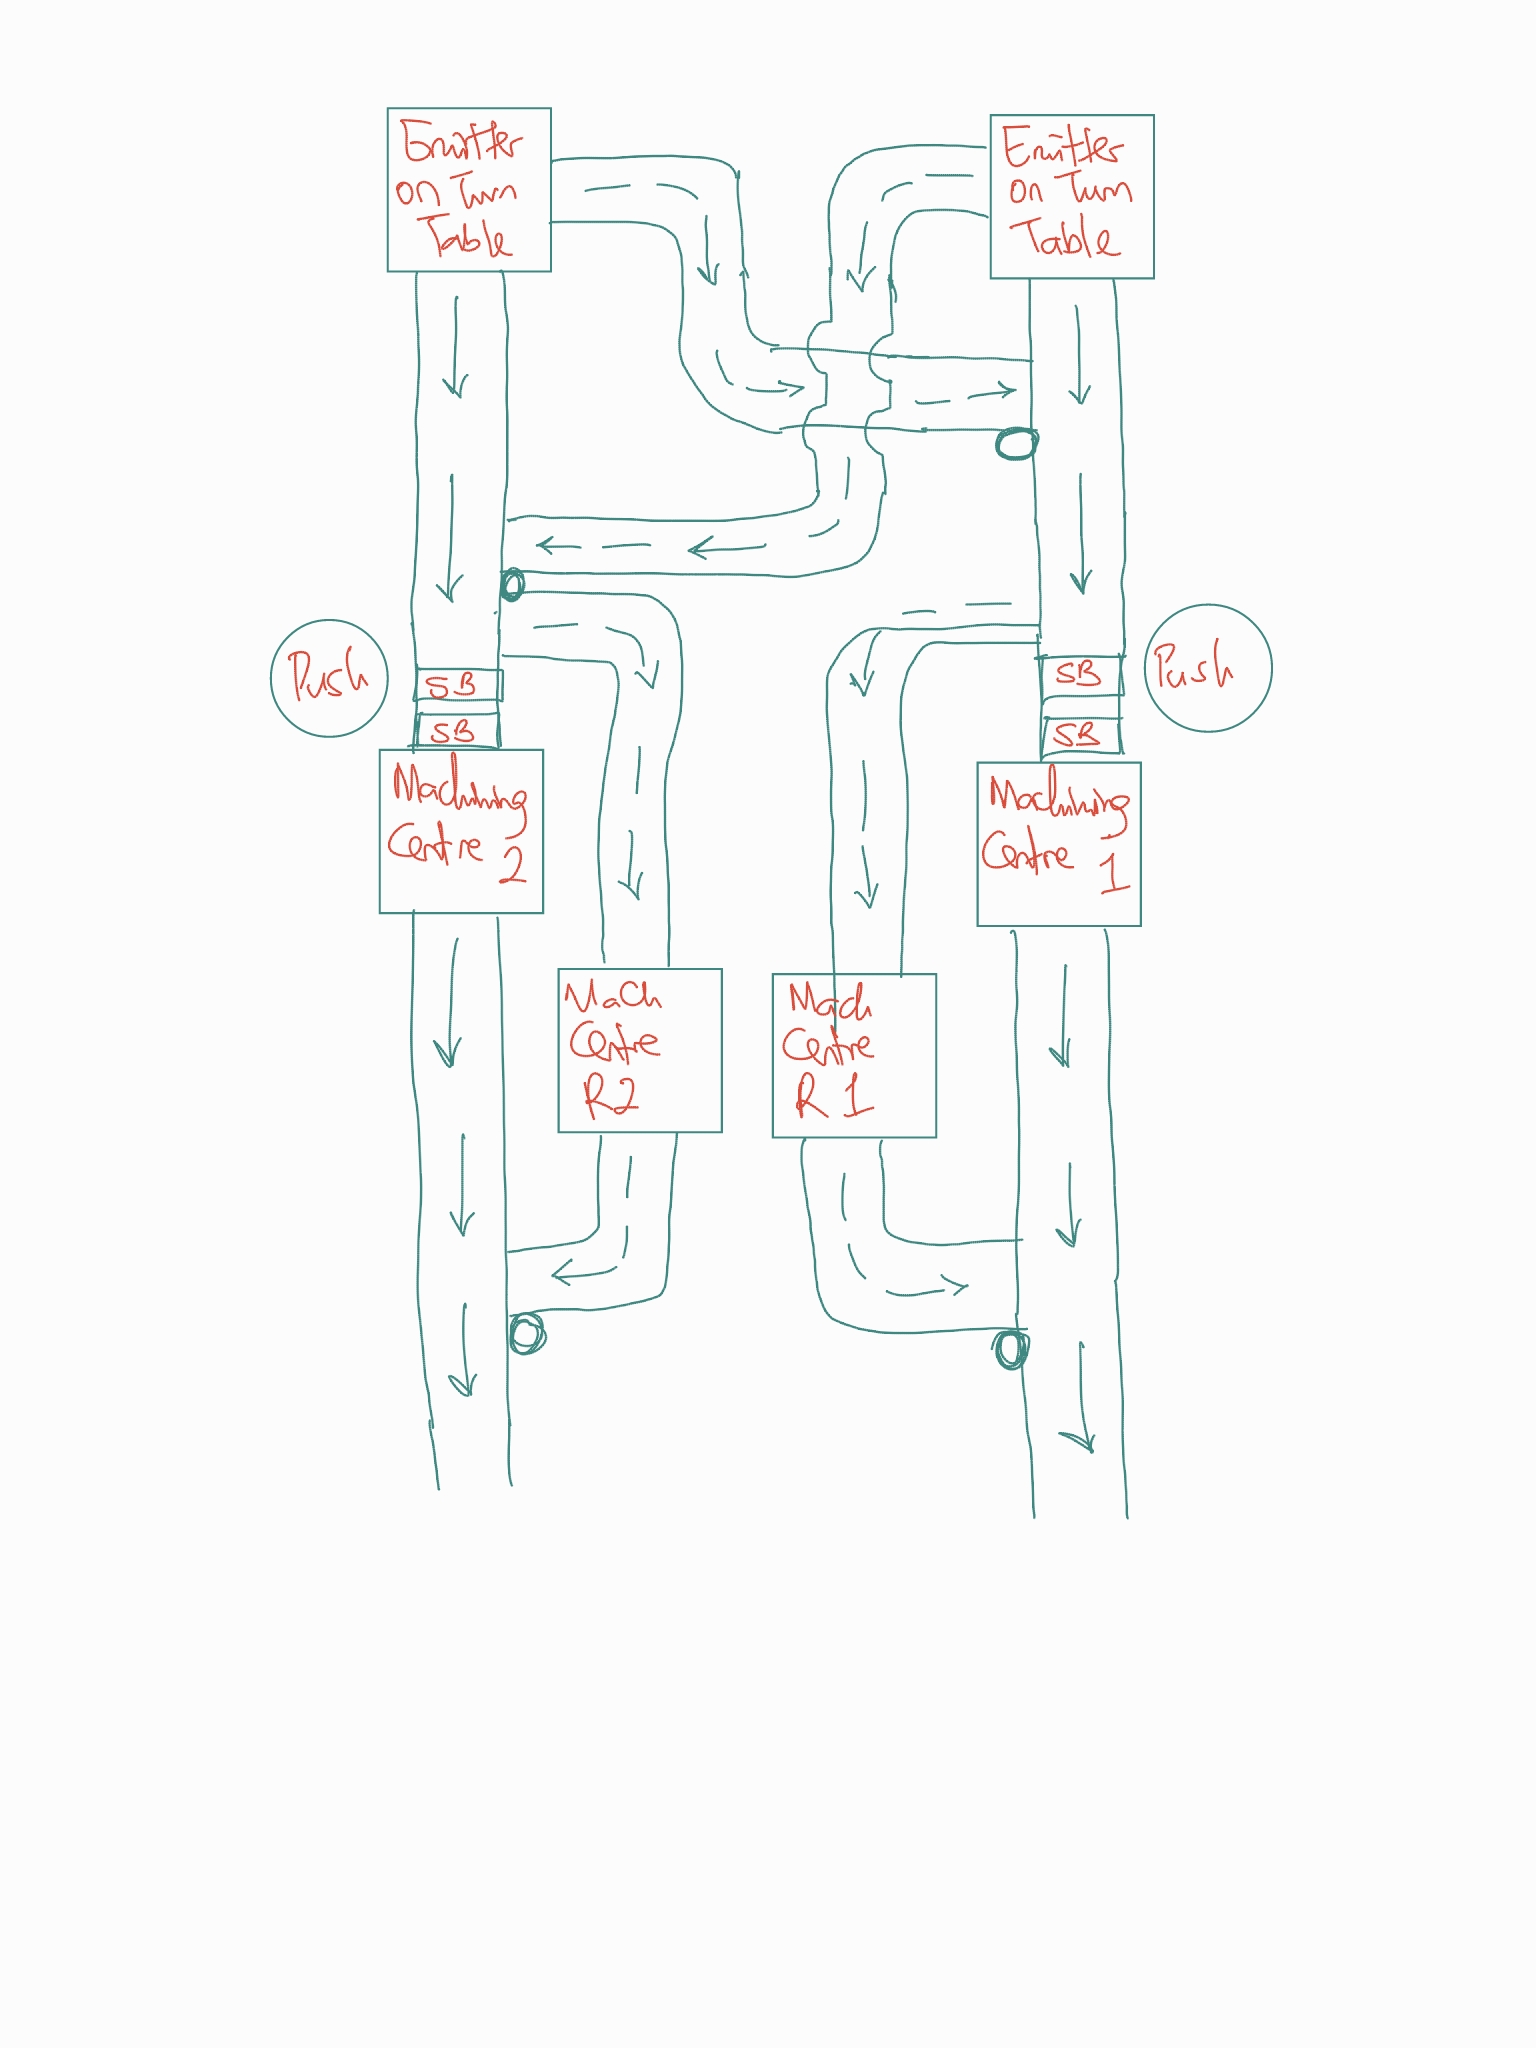 Emitter
on Turn
Table
Emitter
on Turn
Table
Push
SB
SB
Machining
Centre 2
SB
SB
Push
Machining
Centre 1
Mach
Centre
R2
Mach
Centre
R1